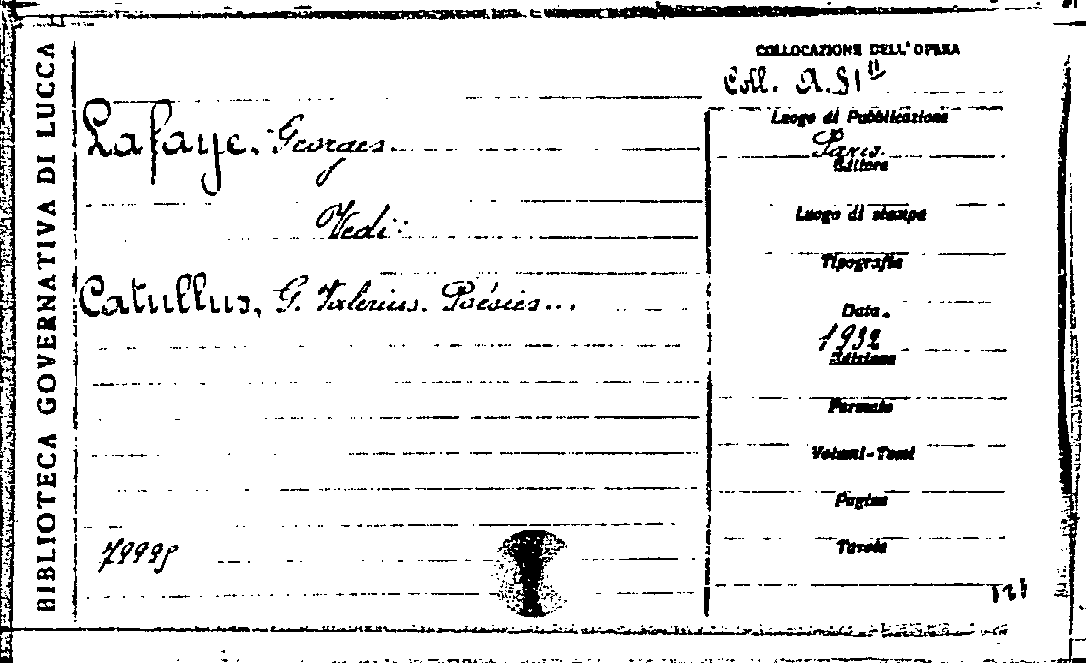 BIBLIOTECA GOVERNATIVA DI LUCCA
COLLOCAZIONE DELL'OPERA
Coll. A. 81
Lafaye. Georges.
Vedi:
Catullus, G. Valerius. Poésies...
Luogo di Pubblicazione
Paris.
Editore
Luogo di stampa
Tipografia
Data.
1932
Edizione
Formato
Volumi-Tomi
Pagine
Tavole